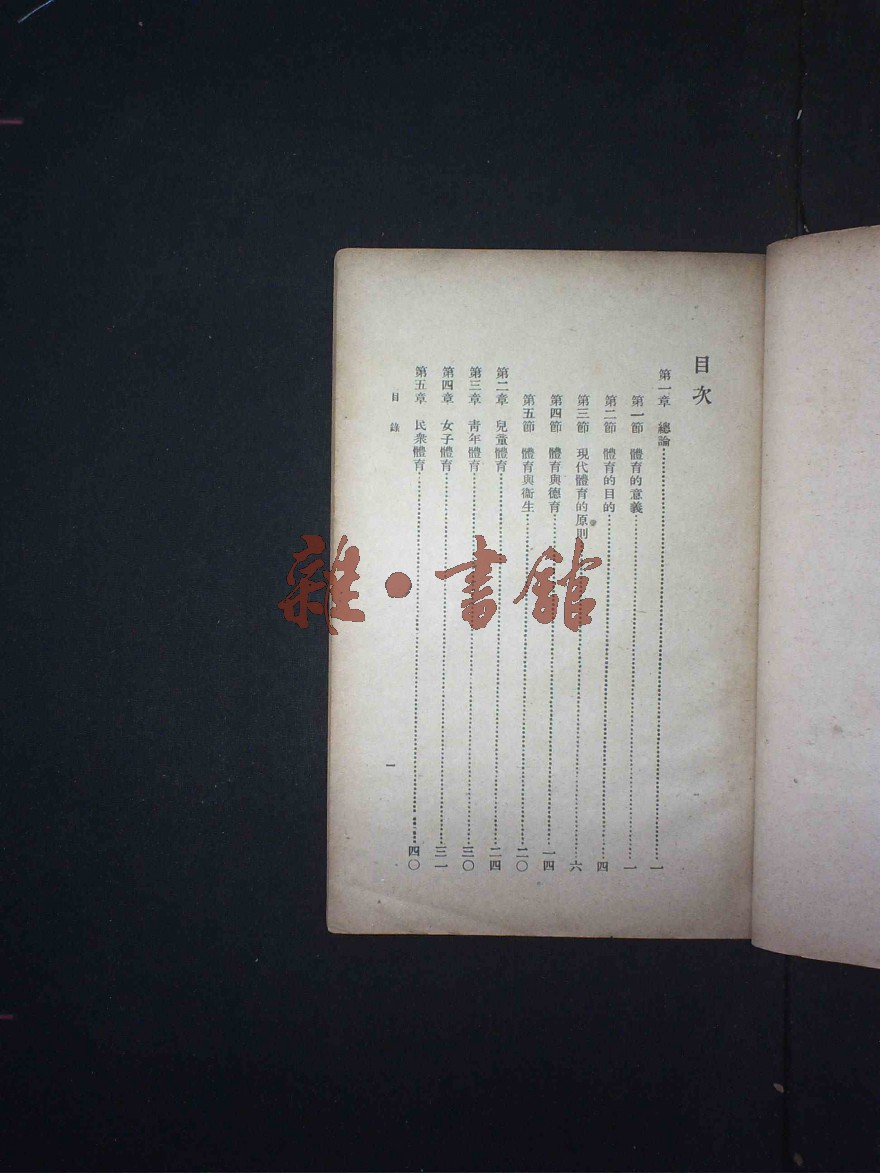 目次
第一章 總論……一
第一節 體育的意義……一
第二節 體育的目的……四
第三節 現代體育的原則……六
第四節 體育與德育……一四
第五節 體育與衞生……二〇
第二章 兒童體育……二四
第三章 靑年體育……三〇
第四章 女子體育……三一
第五章 民衆體育……四〇
目錄 一
雜·書館